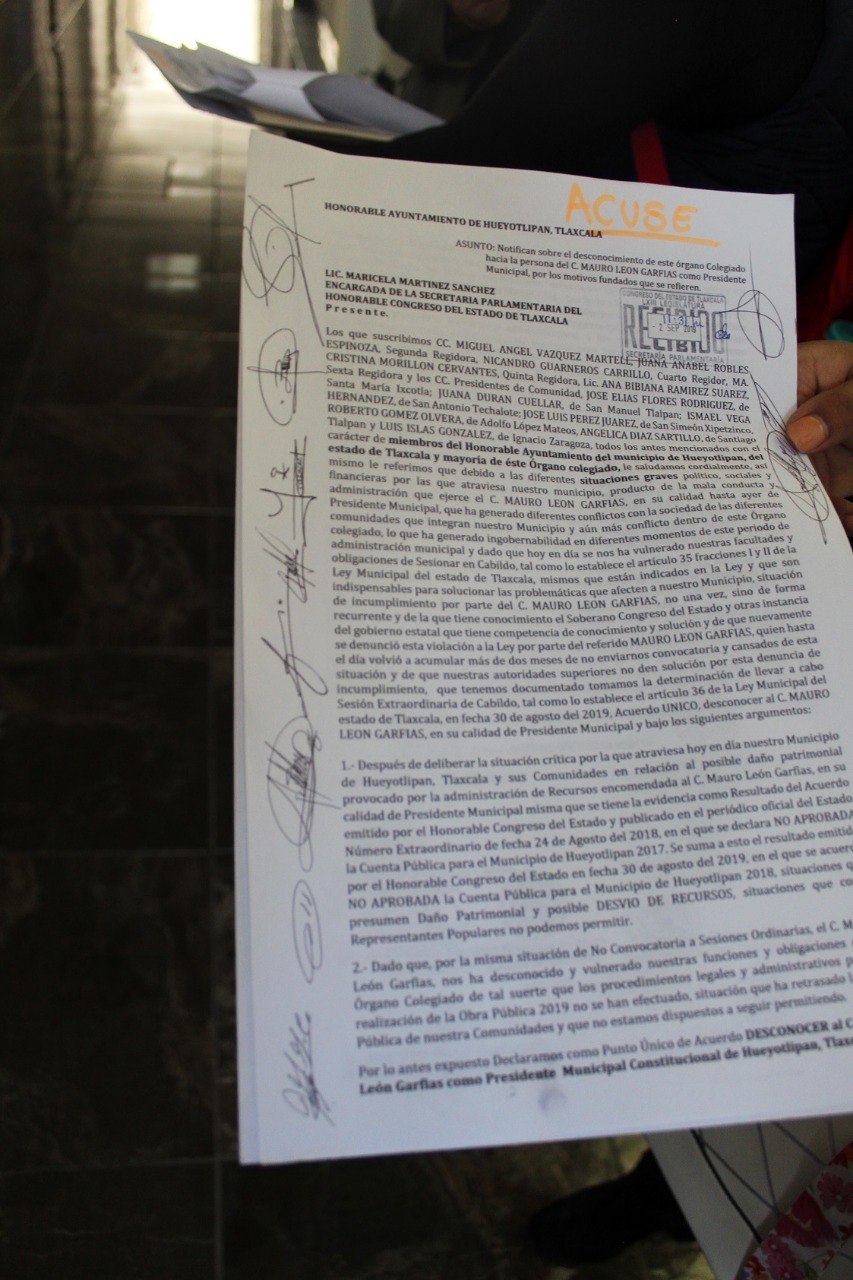 ACUSE
HONORABLE AYUNTAMIENTO DE HUEYOTLIPAN, TLAXCALA
ASUNTO: Notifican sobre el desconocimiento de este órgano Colegiado
hacia la persona del C. MAURO LEON GARFIAS como Presidente
Municipal, por los motivos fundados que se refieren.
LIC. MARICELA MARTINEZ SANCHEZ
ENCARGADA DE LA SECRETARIA PARLAMENTARIA DEL
HONORABLE CONGRESO DEL ESTADO DE TLAXCALA
Presente.
CONGRESO DEL ESTADO DE TLAXCALA
LXIII LEGISLATURA
RECIBIDO
- 2 SEP 2019
SECRETARIA PARLAMENTARIA
Los que suscribimos CC. MIGUEL ANGEL VAZQUEZ MARTELL, JUANA ANABEL ROBLES
ESPINOZA, Segunda Regidora, NICANDRO GUARNEROS CARRILLO, Cuarto Regidor, MA.
CRISTINA MORILLON CERVANTES, Quinta Regidora, Lic. ANA BIBIANA RAMIREZ SUAREZ,
Sexta Regidora y los CC. Presidentes de Comunidad, JOSE ELIAS FLORES RODRIGUEZ, de
Santa María Ixcotla; JUANA DURAN CUELLAR, de San Manuel Tlalpan; ISMAEL VEGA
HERNANDEZ, de San Antonio Techalote; JOSE LUIS PEREZ JUAREZ, de San Simeón Xipetzinco,
ROBERTO GOMEZ OLVERA, de Adolfo López Mateos, ANGELICA DIAZ SARTILLO, de Santiago
Tlalpan y LUIS ISLAS GONZALEZ, de Ignacio Zaragoza, todos los antes mencionados con el
carácter de miembros del Honorable Ayuntamiento del municipio de Hueyotlipan, del
estado de Tlaxcala y mayoría de éste Órgano colegiado, le saludamos cordialmente, así
mismo le referimos que debido a las diferentes situaciones graves político, sociales y
financieras por las que atraviesa nuestro municipio, producto de la mala conducta y
administración que ejerce el C. MAURO LEON GARFIAS, en su calidad hasta ayer de
Presidente Municipal, que ha generado diferentes conflictos con la sociedad de las diferentes
comunidades que integran nuestro Municipio y aún más conflicto dentro de este Órgano
colegiado, lo que ha generado ingobernabilidad en diferentes momentos de este periodo de
administración municipal y dado que hoy en día se nos ha vulnerado nuestras facultades y
obligaciones de Sesionar en Cabildo, tal como lo establece el artículo 35 fracciones I y II de la
Ley Municipal del estado de Tlaxcala, mismos que están indicados en la Ley y que son
indispensables para solucionar las problemáticas que afecten a nuestro Municipio, situación
de incumplimiento por parte del C. MAURO LEON GARFIAS, no una vez, sino de forma
recurrente y de la que tiene conocimiento el Soberano Congreso del Estado y otras instancia
del gobierno estatal que tiene competencia de conocimiento y solución y de que nuevamente
se denunció esta violación a la Ley por parte del referido MAURO LEON GARFIAS, quien hasta
el día volvió a acumular más de dos meses de no enviarnos convocatoria y cansados de esta
situación y de que nuestras autoridades superiores no den solución por esta denuncia de
incumplimiento, que tenemos documentado tomamos la determinación de llevar a cabo
Sesión Extraordinaria de Cabildo, tal como lo establece el artículo 36 de la Ley Municipal del
estado de Tlaxcala, en fecha 30 de agosto del 2019, Acuerdo UNICO, desconocer al C. MAURO
LEON GARFIAS, en su calidad de Presidente Municipal y bajo los siguientes argumentos:
1.- Después de deliberar la situación crítica por la que atraviesa hoy en día nuestro Municipio
de Hueyotlipan, Tlaxcala y sus Comunidades en relación al posible daño patrimonial
provocado por la administración de Recursos encomendada al C. Mauro León Garfias, en su
calidad de Presidente Municipal misma que se tiene la evidencia como Resultado del Acuerdo
emitido por el Honorable Congreso del Estado y publicado en el periódico oficial del Estado
Número Extraordinario de fecha 24 de Agosto del 2018, en el que se declara NO APROBADA
la Cuenta Pública para el Municipio de Hueyotlipan 2017. Se suma a esto el resultado emitid
por el Honorable Congreso del Estado en fecha 30 de agosto del 2019, en el que se acuer
NO APROBADA la Cuenta Pública para el Municipio de Hueyotlipan 2018, situaciones q
presumen Daño Patrimonial y posible DESVIO DE RECURSOS, situaciones que co
Representantes Populares no podemos permitir.
2.- Dado que, por la misma situación de No Convocatoria a Sesiones Ordinarias, el C. M
León Garfias, nos ha desconocido y vulnerado nuestras funciones y obligaciones
Órgano Colegiado de tal suerte que los procedimientos legales y administrativos p
realización de la Obra Pública 2019 no se han efectuado, situación que ha retrasado l
Pública de nuestra Comunidades y que no estamos dispuestos a seguir permitiendo.
Por lo antes expuesto Declaramos como Punto Único de Acuerdo DESCONOCER al C
León Garfias como Presidente Municipal Constitucional de Hueyotlipan, Tlax